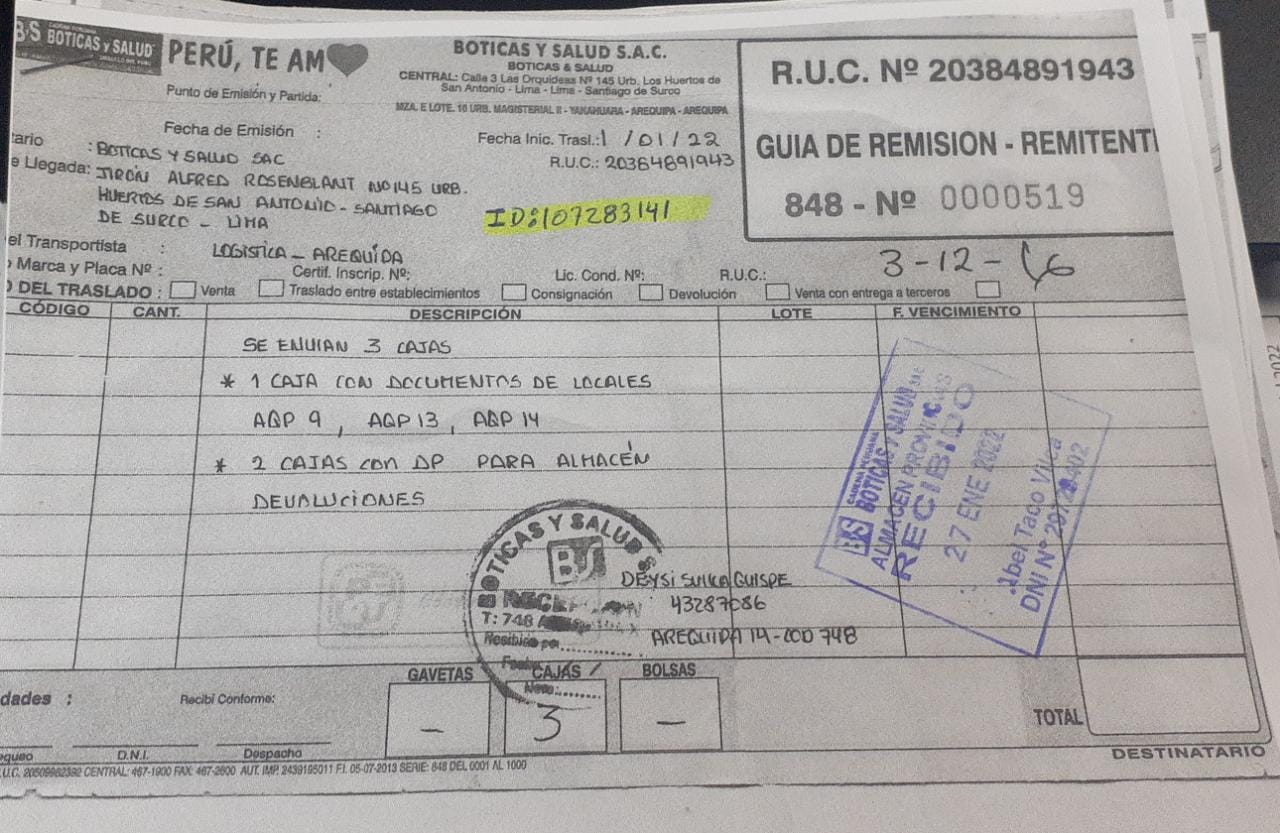 BS BOTICAS y SALUD
PERÚ, TE AM
BOTICAS Y SALUD S.A.C.
BOTICAS & SALUD
CENTRAL: Calle 3 Las Orquideas Nº 145 Urb. Los Huertos de
San Antonio - Lima - Lima - Santiago de Surco
MZA. E LOTE. 10 URB. MAGISTERIAL II - YANAHUARA - AREQUIPA - AREQUIPA
Punto de Emisión y Partida:
Fecha de Emisión :
Fecha Inic. Trasl.: 1 /01/22
R.U.C.: 20384891943
R.U.C. Nº 20384891943
GUIA DE REMISION - REMITENT
848 - Nº 0000519
tario : BOTICAS Y SALUD SAC
e Llegada: JIRÓN ALFRED ROSENBLANT NO 145 URB.
HUERTOS DE SAN ANTONIO - SANTIAGO
DE SURCO - LIMA
ID:107283141
el Transportista : LOGISTICA - AREQUIDA
Marca y Placa Nº :
Certif. Inscrip. Nº:
Lic. Cond. Nº:
R.U.C.:
3-12-16
O DEL TRASLADO : Venta Traslado entre establecimientos Consignación Devolución Venta con entrega a terceros
CÓDIGO CANT. DESCRIPCIÓN LOTE F. VENCIMIENTO
SE ENVIAN 3 CAJAS
* 1 CAJA CON DOCUMENTOS DE LOCALES
AQP 9 , AQP 13 , AQP 14
* 2 CAJAS CON DP PARA ALMACÉN
DEVOLUCIONES
CADENA PERUANA
BS BOTICAS Y SALUD
ALMACEN PROVINCIAS
RECIBIDO
27 ENE 2022
Abel Taco Vilca
DNI Nº
BOTICAS Y SALUD S
BS
T: 748
Recibido por
Fecha
Hora:
DEYSI SULLCA QUISPE
43287086
AREQUIDA 14-COD 748
GAVETAS CAJAS BOLSAS
- 3 -
dades : Recibí Conforme:
TOTAL
queo D.N.I. Despacho
DESTINATARIO
U.C. 20509982392 CENTRAL: 467-1900 FAX: 467-2600 AUT. IMP. 2439195011 F.I. 05-07-2013 SERIE: 848 DEL 0001 AL 1000
2022